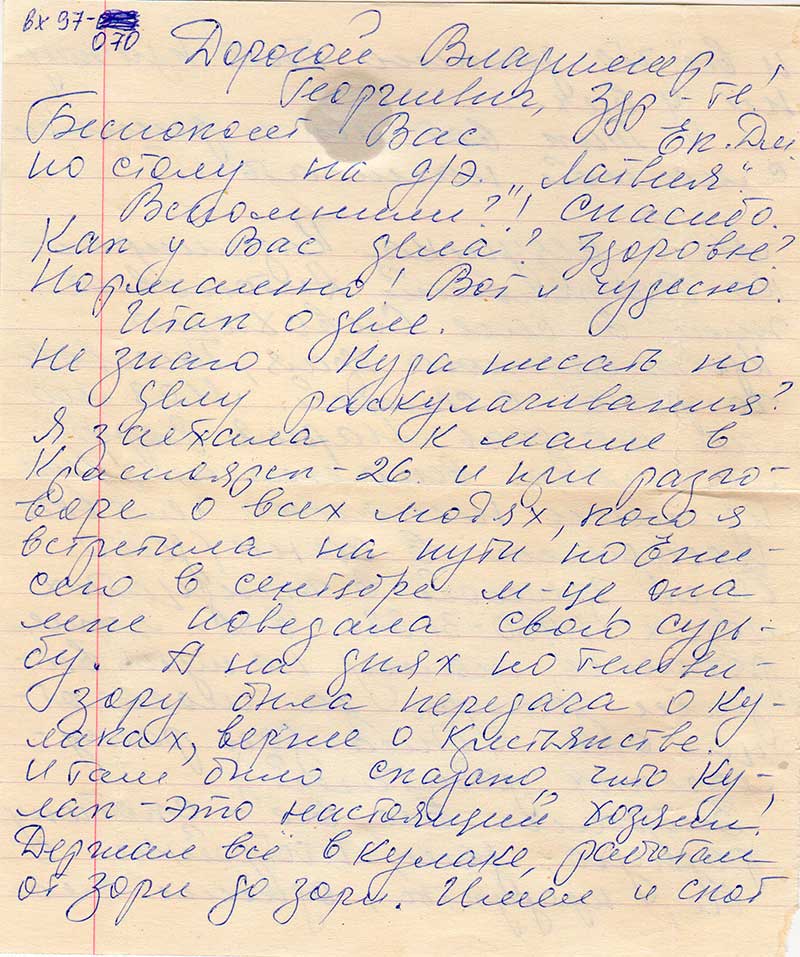 вх 97-
070
Дорогой Владимир
Георгиевич, Здр-те!
Беспокоит Вас Ек. Дм
по столу на д/э. „Латвия".
Вспомнили?! Спасибо.
Как у Вас дела? Здоровье?
Нормально! Вот и чудесно.
Итак о деле.
Не знаю куда писать по
делу раскулачивания?
Я заехала к маме в
Красноярск-26. и при разго-
воре о всех людях, кого я
встретила на пути по Ени-
сею в сентябре м-це, она
мне поведала свою судь-
бу. А на днях по телеви-
зору была передача о ку-
лаках, вернее о кистьянстве.
И там было сказано, что „Ку-
лак - это настоящий хозяин!
Держал всё в кулаке, работал
от зори до зори. Имел и скот